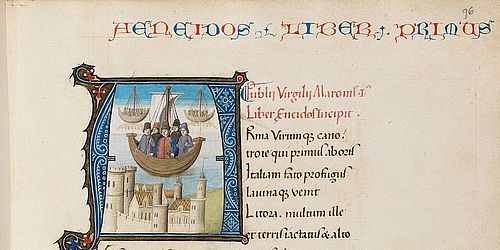 96
AENEIDOS LIBER PRIMUS
Publii Virgilii Maronis
Liber Eneidos Incipit
Rma Virumq3 cano.
troie qui primus ab oris
Italiam fato profugus
lauinaq3 venit
Litora. multum ille
et terris iactatus & alto